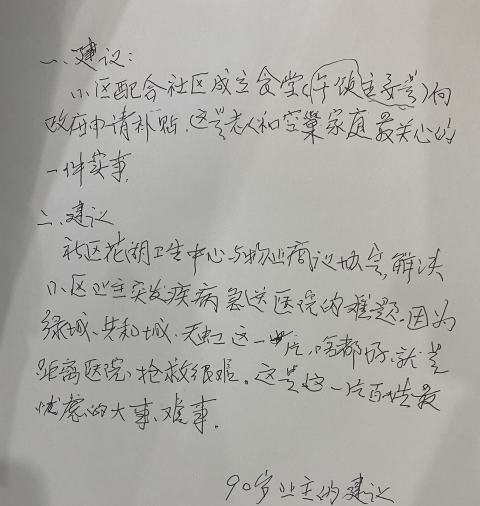 一、建议:
小区配合社区成立食堂(午饭主要是)向
政府申请补贴.这是老人和空巢家庭最关心的
一件实事.
二、建议
社区花湖卫生中心与物业商议协定,解决
小区业主突发疾病急送医院的难题.因为
绿城、共和城、天虹这一片,啥都好,就是
距离医院、抢救很难。这是这一片百姓最
忧虑的大事、难事.
90岁业主的建议